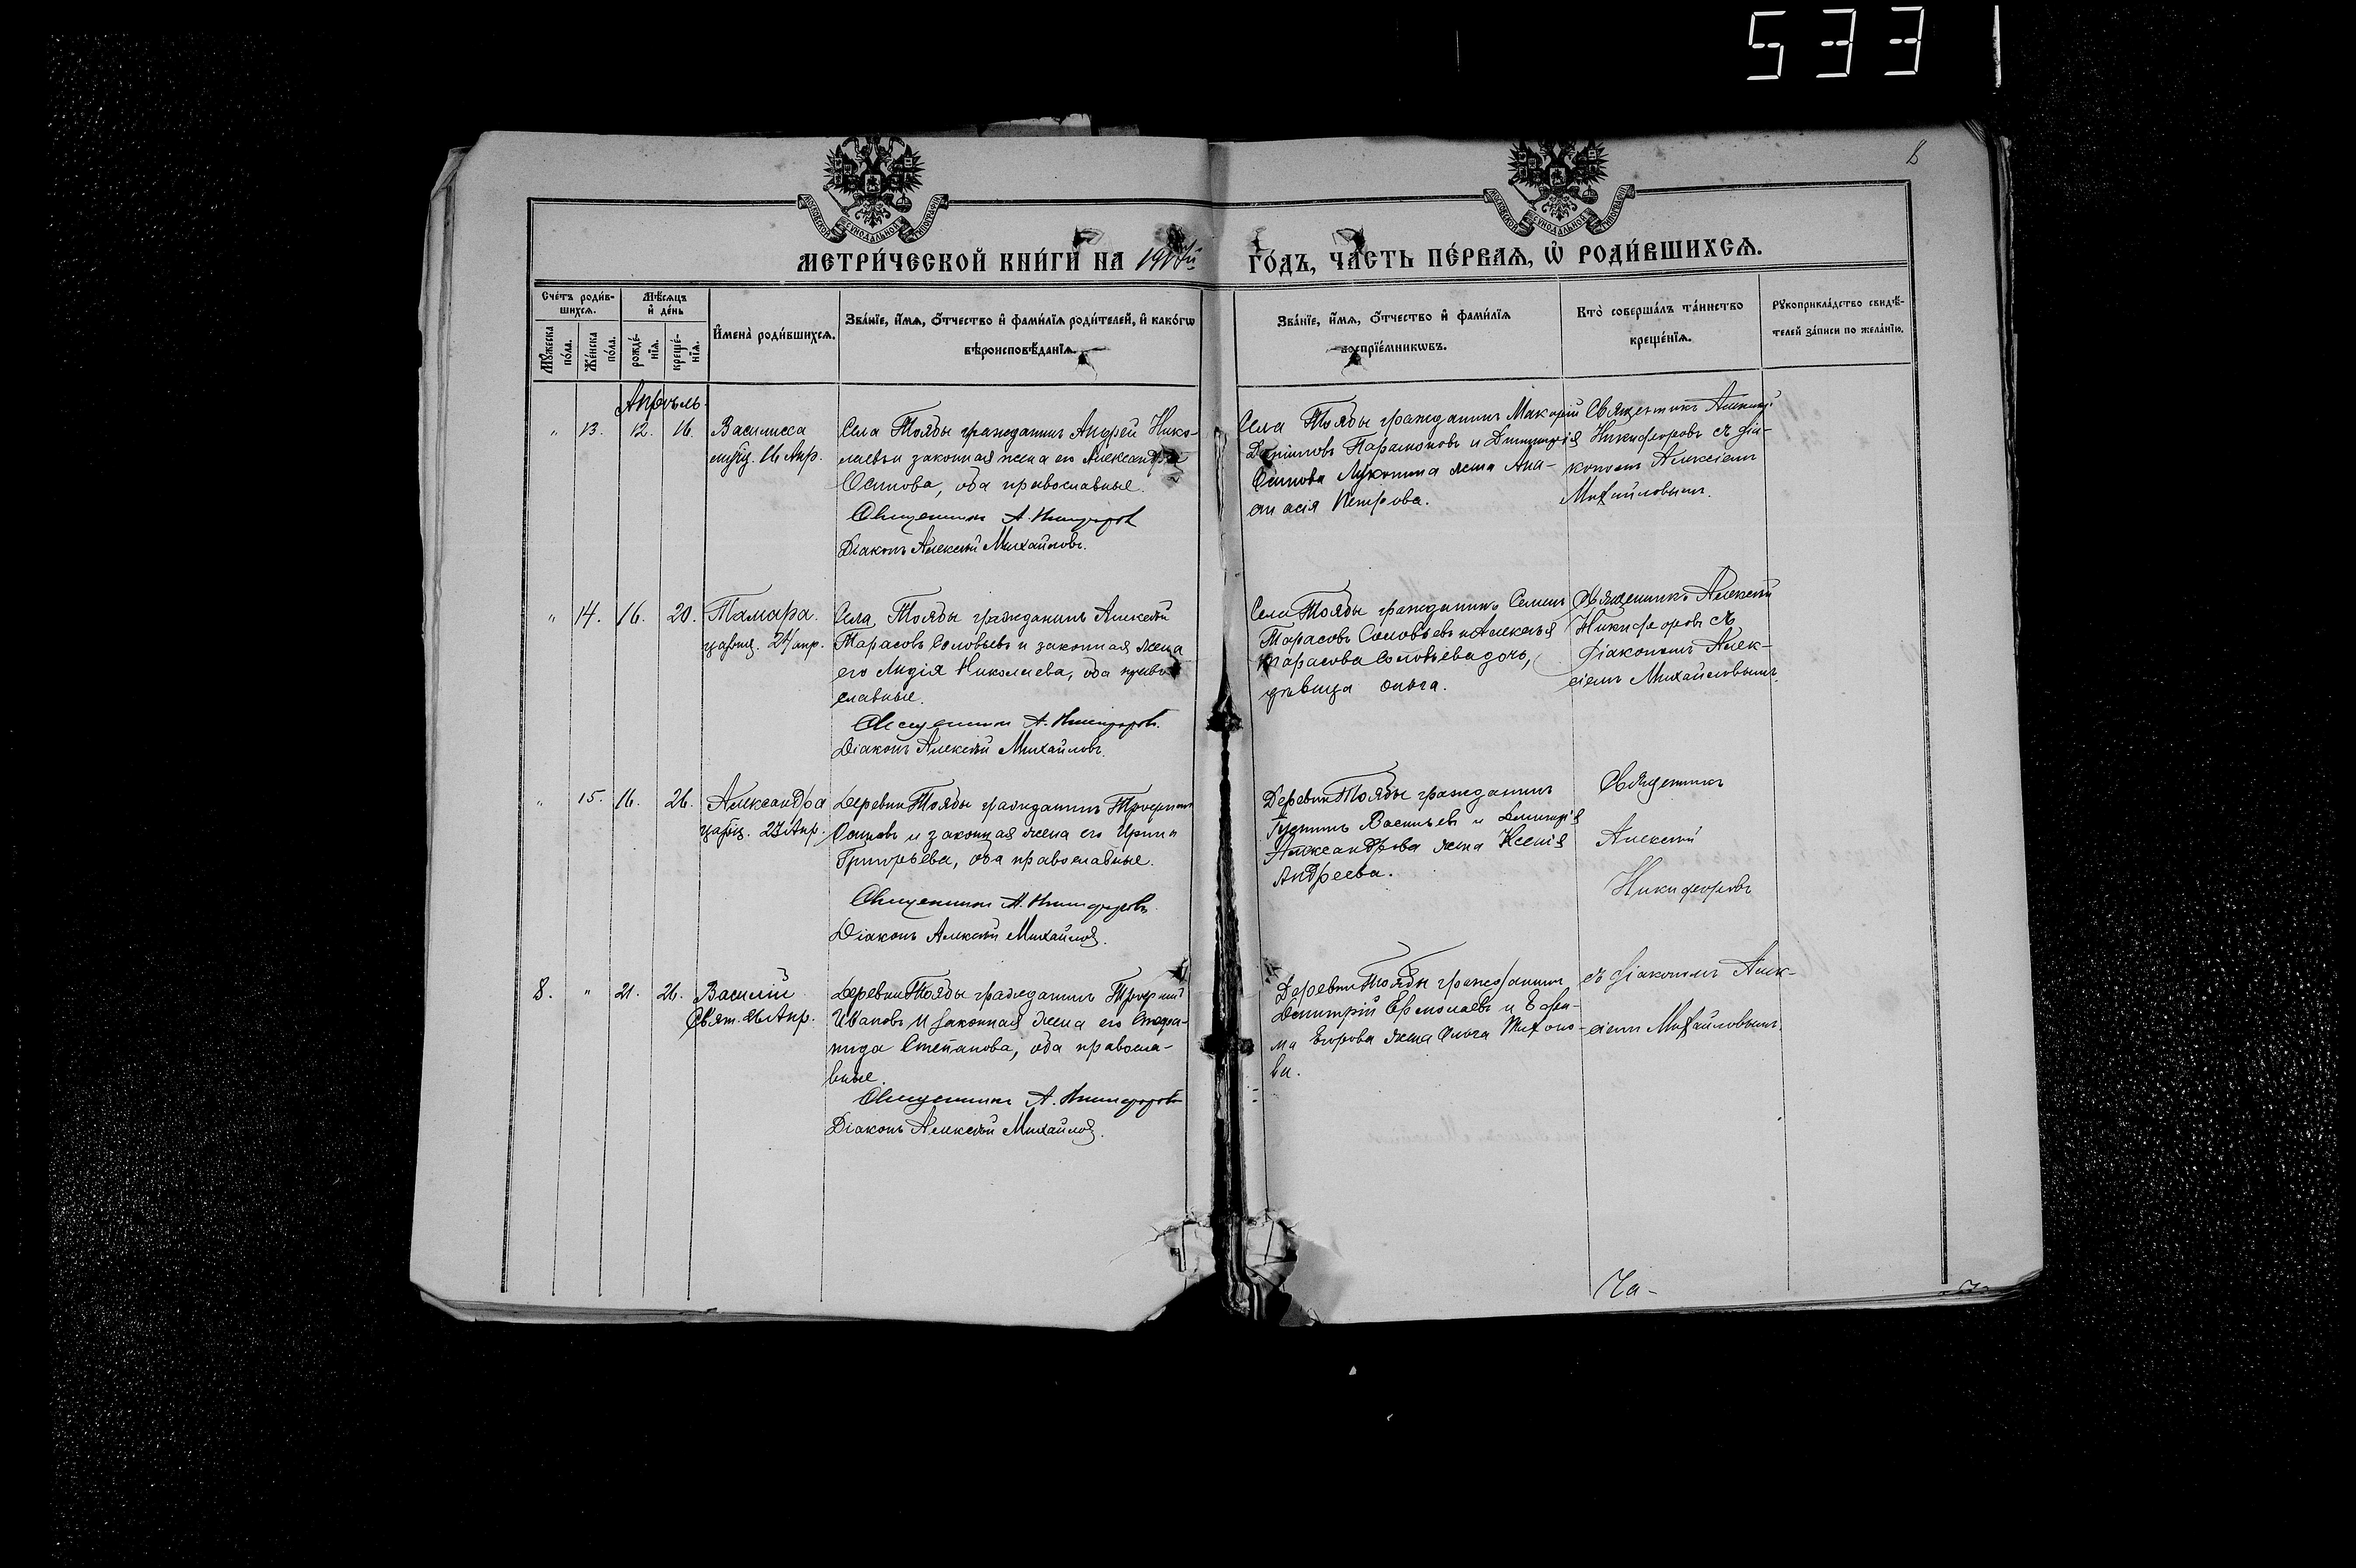 5331
8
МОСКОВСКОЙ СѴНОДАЛЬНОЙ ТИПОГРАФІИ
МОСКОВСКОЙ СѴНОДАЛЬНОЙ ТИПОГРАФІИ
МЕТРИ́ЧЕСКОЙ КНИ́ГИ НА
ГО́ДЪ, ЧА́СТЬ ПЕ́РВАѦ, Ѽ РОДИ́ВШИХСѦ.
Сче́тъ роди́в-
шихсѧ.
Мѣ́сѧцъ
и҆ де́нь
Мꙋ́жеска
по́ла.
Же́нска
по́ла.
рожде́-
нїѧ.
креще́-
нїѧ.
И҆мена̀ роди́вшихсѧ.
Зва́нїе, и҆́мѧ, ѻ҆́тчество и҆ фами́лїѧ роди́телей, и҆ како́гѡ
вѣроисповѣ́данїѧ.
Зва́нїе, и҆́мѧ, ѻ҆́тчество и҆ фами́лїѧ
воспрїе́мникѡвъ.
Кто̀ соверша́лъ та́инство
креще́нїѧ.
Рꙋкоприкла́дство свидѣ́-
телей за́писи по жела́нїю.
Апрѣль.
" 13. 12. 16.
Василисса
16 Апр.
Села Тоябы гражданинъ Андрей Нико-
лаевъ и законная жена его Александра
Осипова, оба православные.
Священникъ А. Никифоровъ
Діаконъ Алексѣй Михайловъ.
Села Тоябы гражданинъ Макарій
Парамоновъ и Димитрія
Осипова жена Ана-
стасія Петрова.
Священникъ Алексѣй
Никифоровъ съ діа-
кономъ Алексіемъ
Михайловымъ.
" 14. 16. 20.
Тамара.
цариц. 24 апр.
Села Тоябы гражданинъ Алексѣй
Тарасовъ Соловьевъ и законная жена
его Лидія Николаева, оба право-
славные.
Священникъ А. Никифоровъ.
Діаконъ Алексѣй Михайловъ.
Села Тоябы гражданинъ Семенъ
Тарасовъ Соловьевъ и Алексѣя
Тарасова Соловьева дочь,
дѣвица Ольга.
Священникъ Алексѣй
Никифоровъ съ
діакономъ Алек-
сіемъ Михайловымъ.
" 15. 16. 26.
Александра
цариц. 23 Апр.
Деревни Тоябы гражданинъ Трофимъ
Осиповъ и законная жена его Ирина
Григорьева, оба православные.
Священникъ А. Никифоровъ
Діаконъ Алексѣй Михайловъ.
Деревни Тоябы гражданинъ
Густинъ Васильевъ и Димитрія
Александрова жена Ксенія
Андреева.
Священникъ
Алексѣй
Никифоровъ
8. " 21. 26.
Василій
Свят. 26 Апр.
Деревни Тоябы гражданинъ Трофимъ
Ивановъ и законная жена его Стефа-
нида Степанова, оба правосла-
вные.
Священникъ А. Никифоровъ
Діаконъ Алексѣй Михайловъ.
Деревни Тоябы гражданинъ
Димитрій Ермолаевъ и Ефи-
ма Егорова жена Ольга Тихоно-
ва.
съ діакономъ Алек-
сіемъ Михайловымъ.
Ча-